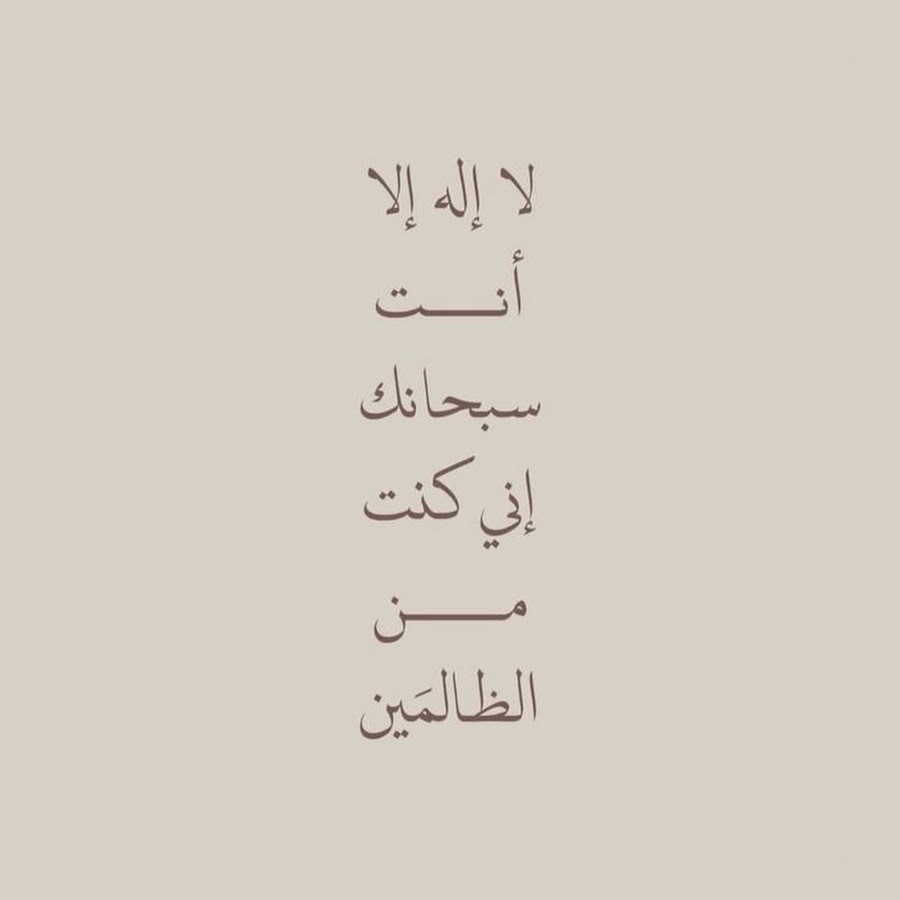 لا إله إلا
أنـــت
سبحانك
إني كنت
مـــن
الظالمَين